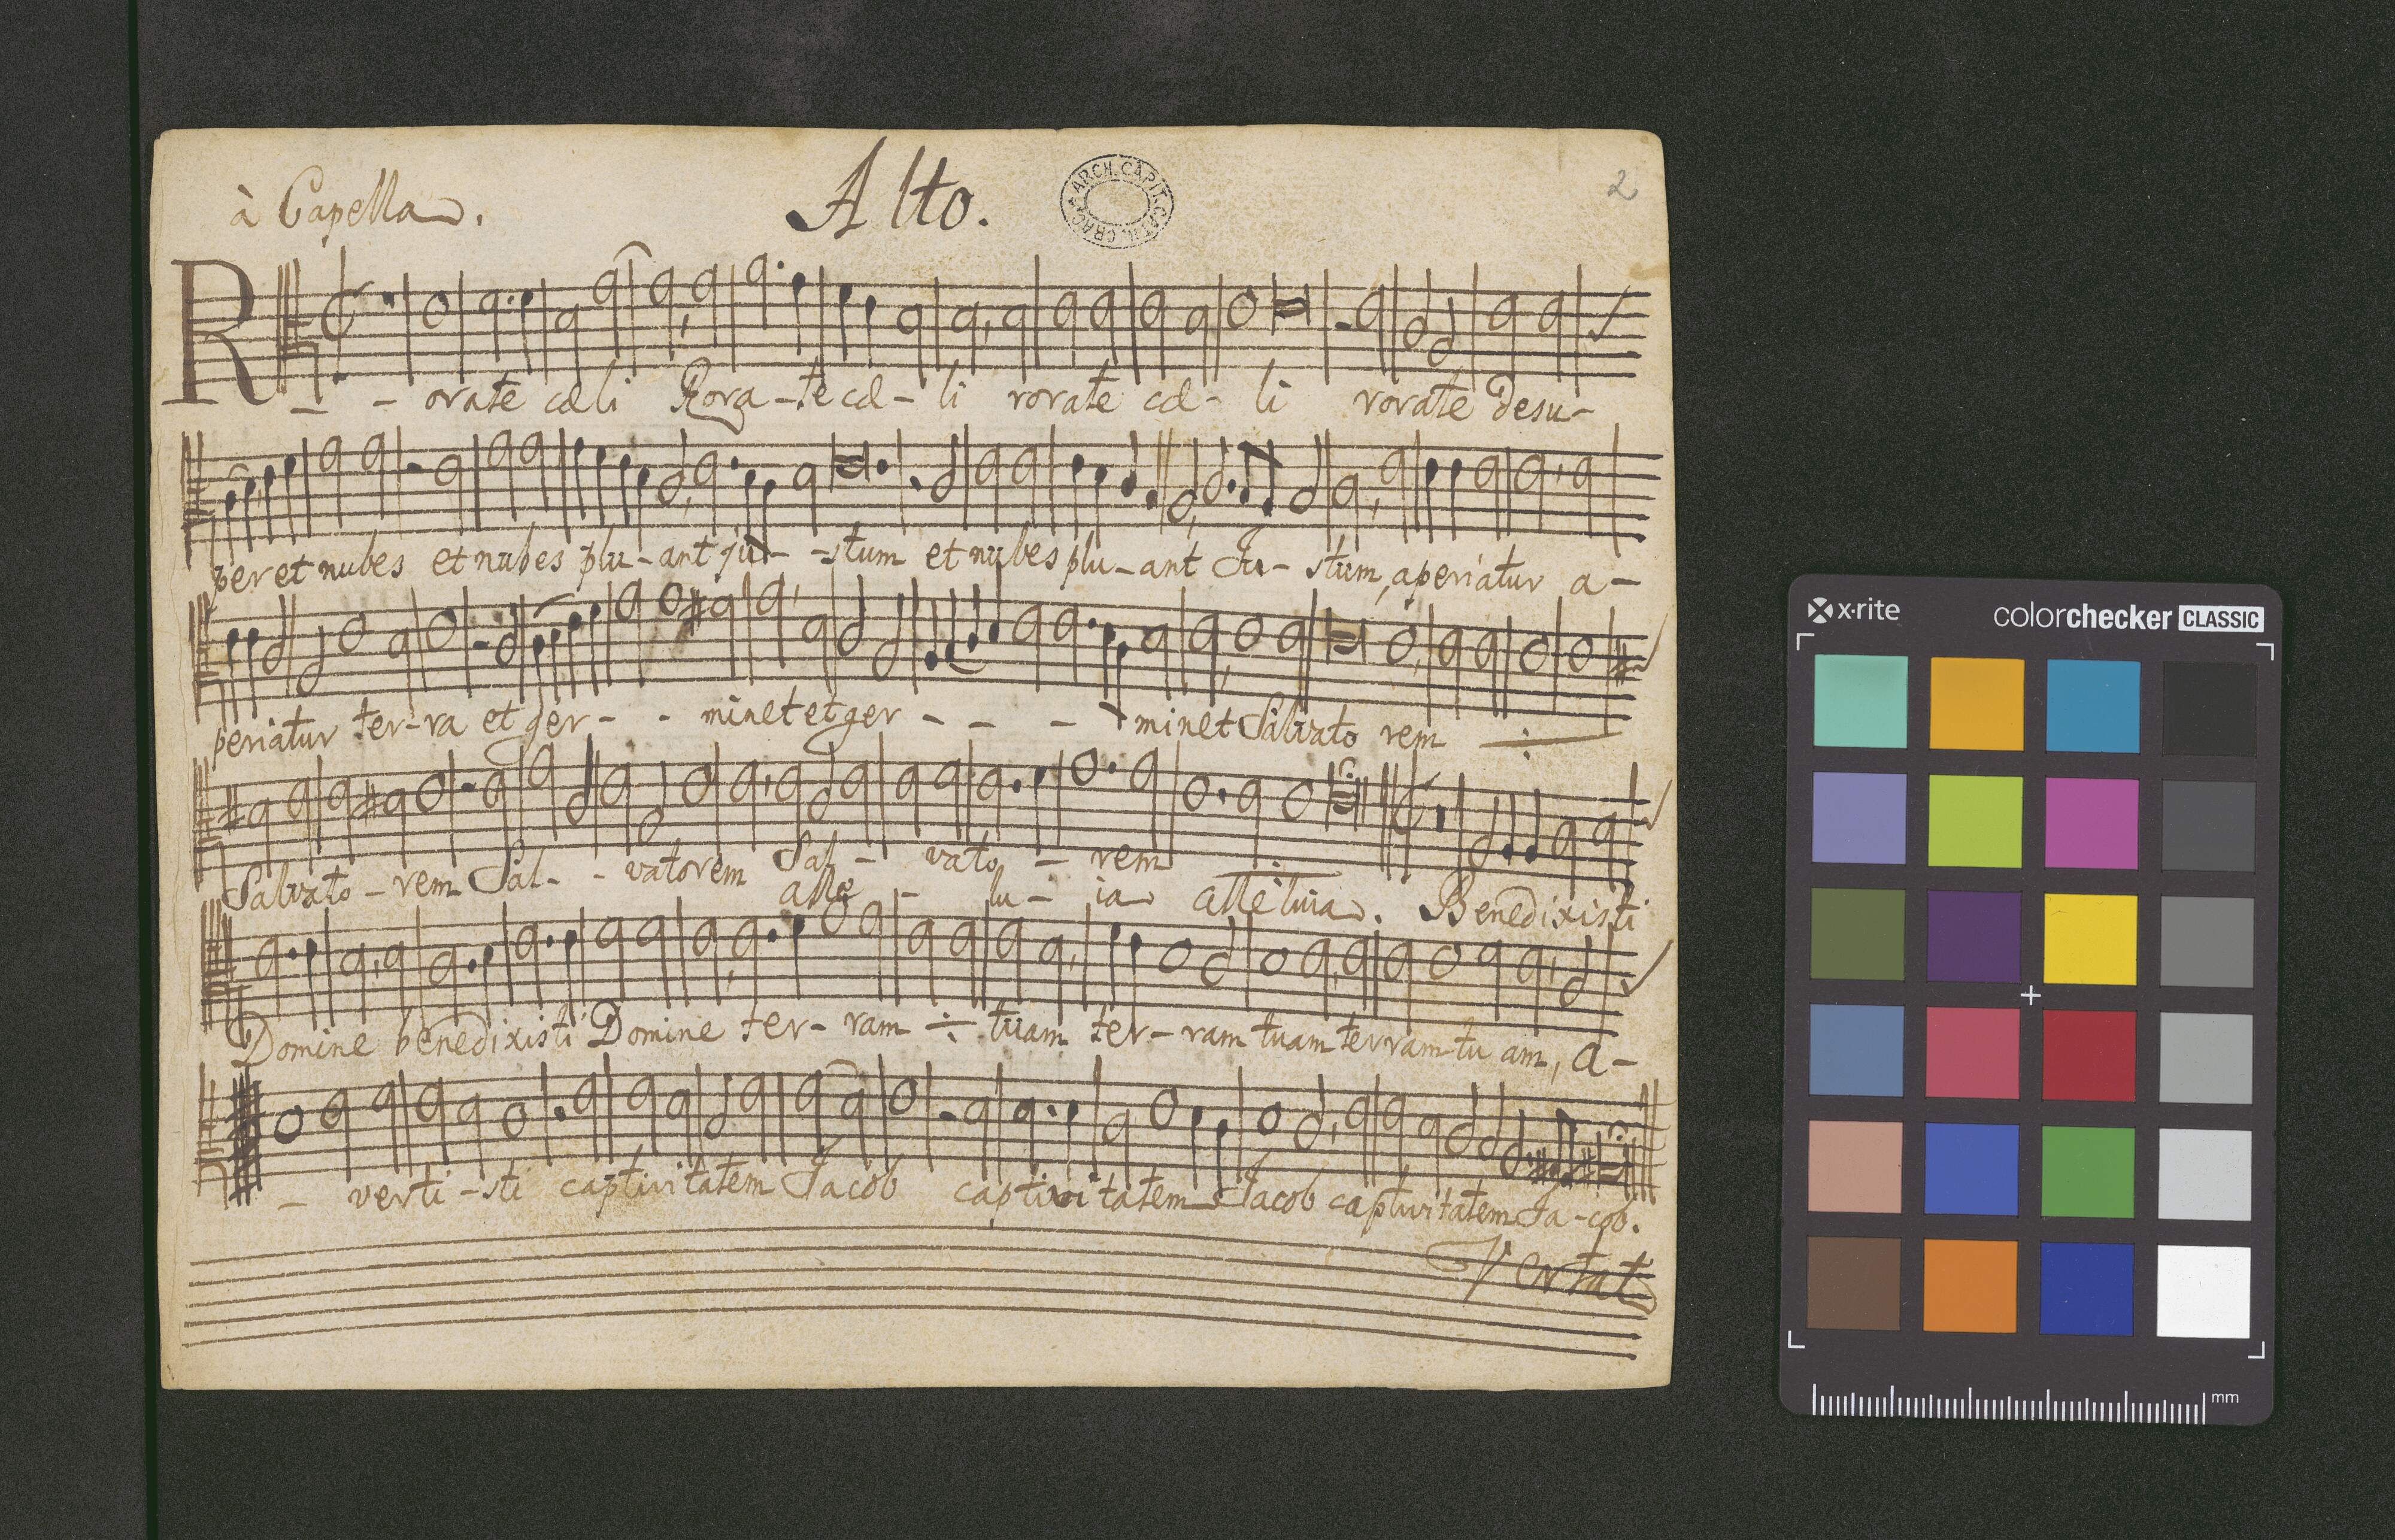 à Capella.
Alto.
ARCH. CAPIT. CATH. CRAC.
2
R - - orate cæli Rora - te cæ - li rorate cæ - li rorate desu -
per et nubes et nubes plu - ant ju - - stum et nubes plu - ant Ju - stum, aperiatur a -
periatur ter - ra et ger - - minet et ger - - - minet Salvato rem ÷
Salvato - rem Sal - - vatorem Sal - vato - rem
alle - lu - ia alleluia. Benedixisti
Domine benedixisti Domine ter - ram ÷ tuam ter - ram tuam terram tu am, a -
- verti - sti captivitatem Jacob captivitatem Jacob captivitatem Ja - cob.
Vertat
x·rite
colorchecker CLASSIC
mm